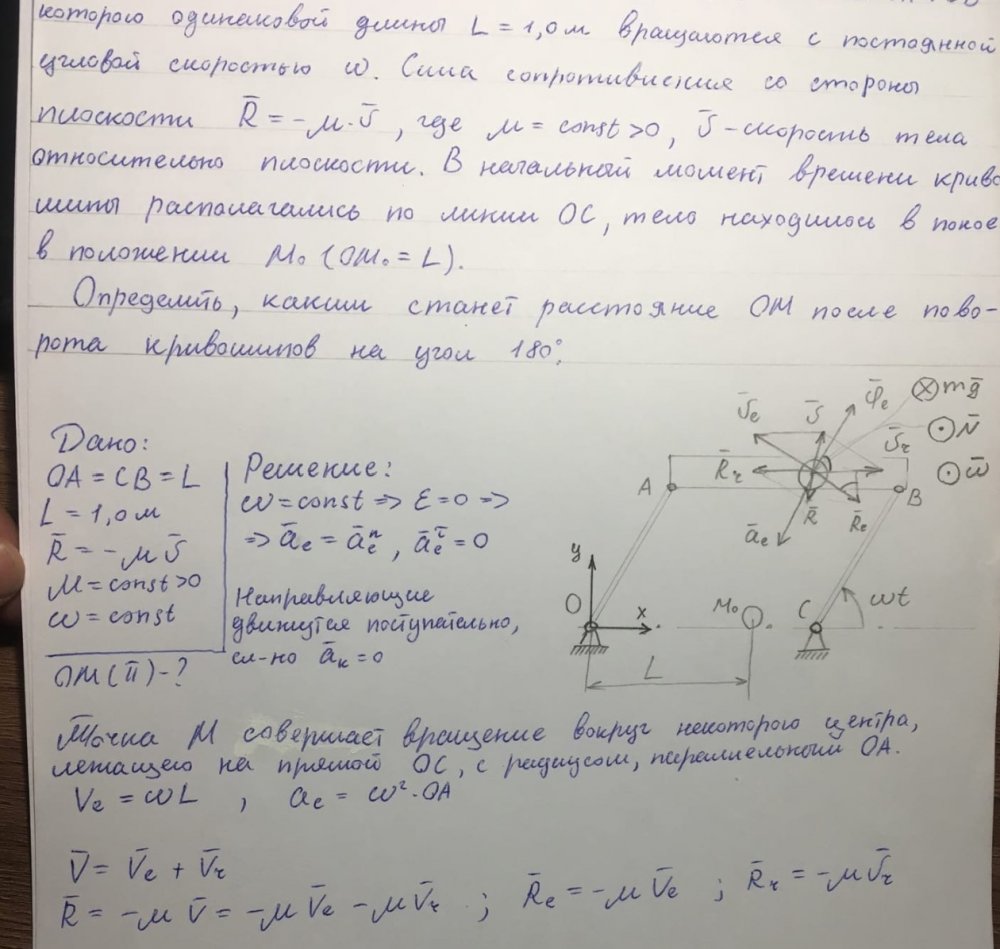 которого одинаковой длины L = 1,0 м вращаются с постоянной
угловой скоростью ω. Сила сопротивления со стороны
плоскости R̄ = -μ·ῡ, где μ = const > 0, ῡ - скорость тела
относительно плоскости. В начальный момент времени криво
шипы располагались по линии OC, тело находилось в покое
в положении M₀ (OM₀ = L).
Определить, каким станет расстояние OM после пово-
рота кривошипов на угол 180°.
Дано:
OA = CB = L
L = 1,0 м
R̄ = -μ ῡ
μ = const > 0
ω = const
OM(π) - ?
Решение:
ω = const => ε = 0 =>
=> āₑ = āₑⁿ, āₑ^τ = 0
Направляющие
движутся поступательно,
сл-но āₖ = 0
ῡₑ ῡ φ̄ₑ ⊗ mḡ
⊙ N̄
R̄ᵣ ῡᵣ ⊙ ω̄
A B
āₑ R̄ R̄ₑ
y
O x M₀ C ωt
L
Точка M совершает вращение вокруг некоторого центра,
лежащего на прямой OC, с радиусом, параллельным OA.
Vₑ = ωL , aₑ = ω²·OA
V̄ = V̄ₑ + V̄ᵣ
R̄ = -μ ῡ = -μV̄ₑ - μV̄ᵣ ; R̄ₑ = -μV̄ₑ ; R̄ᵣ = -μV̄ᵣ